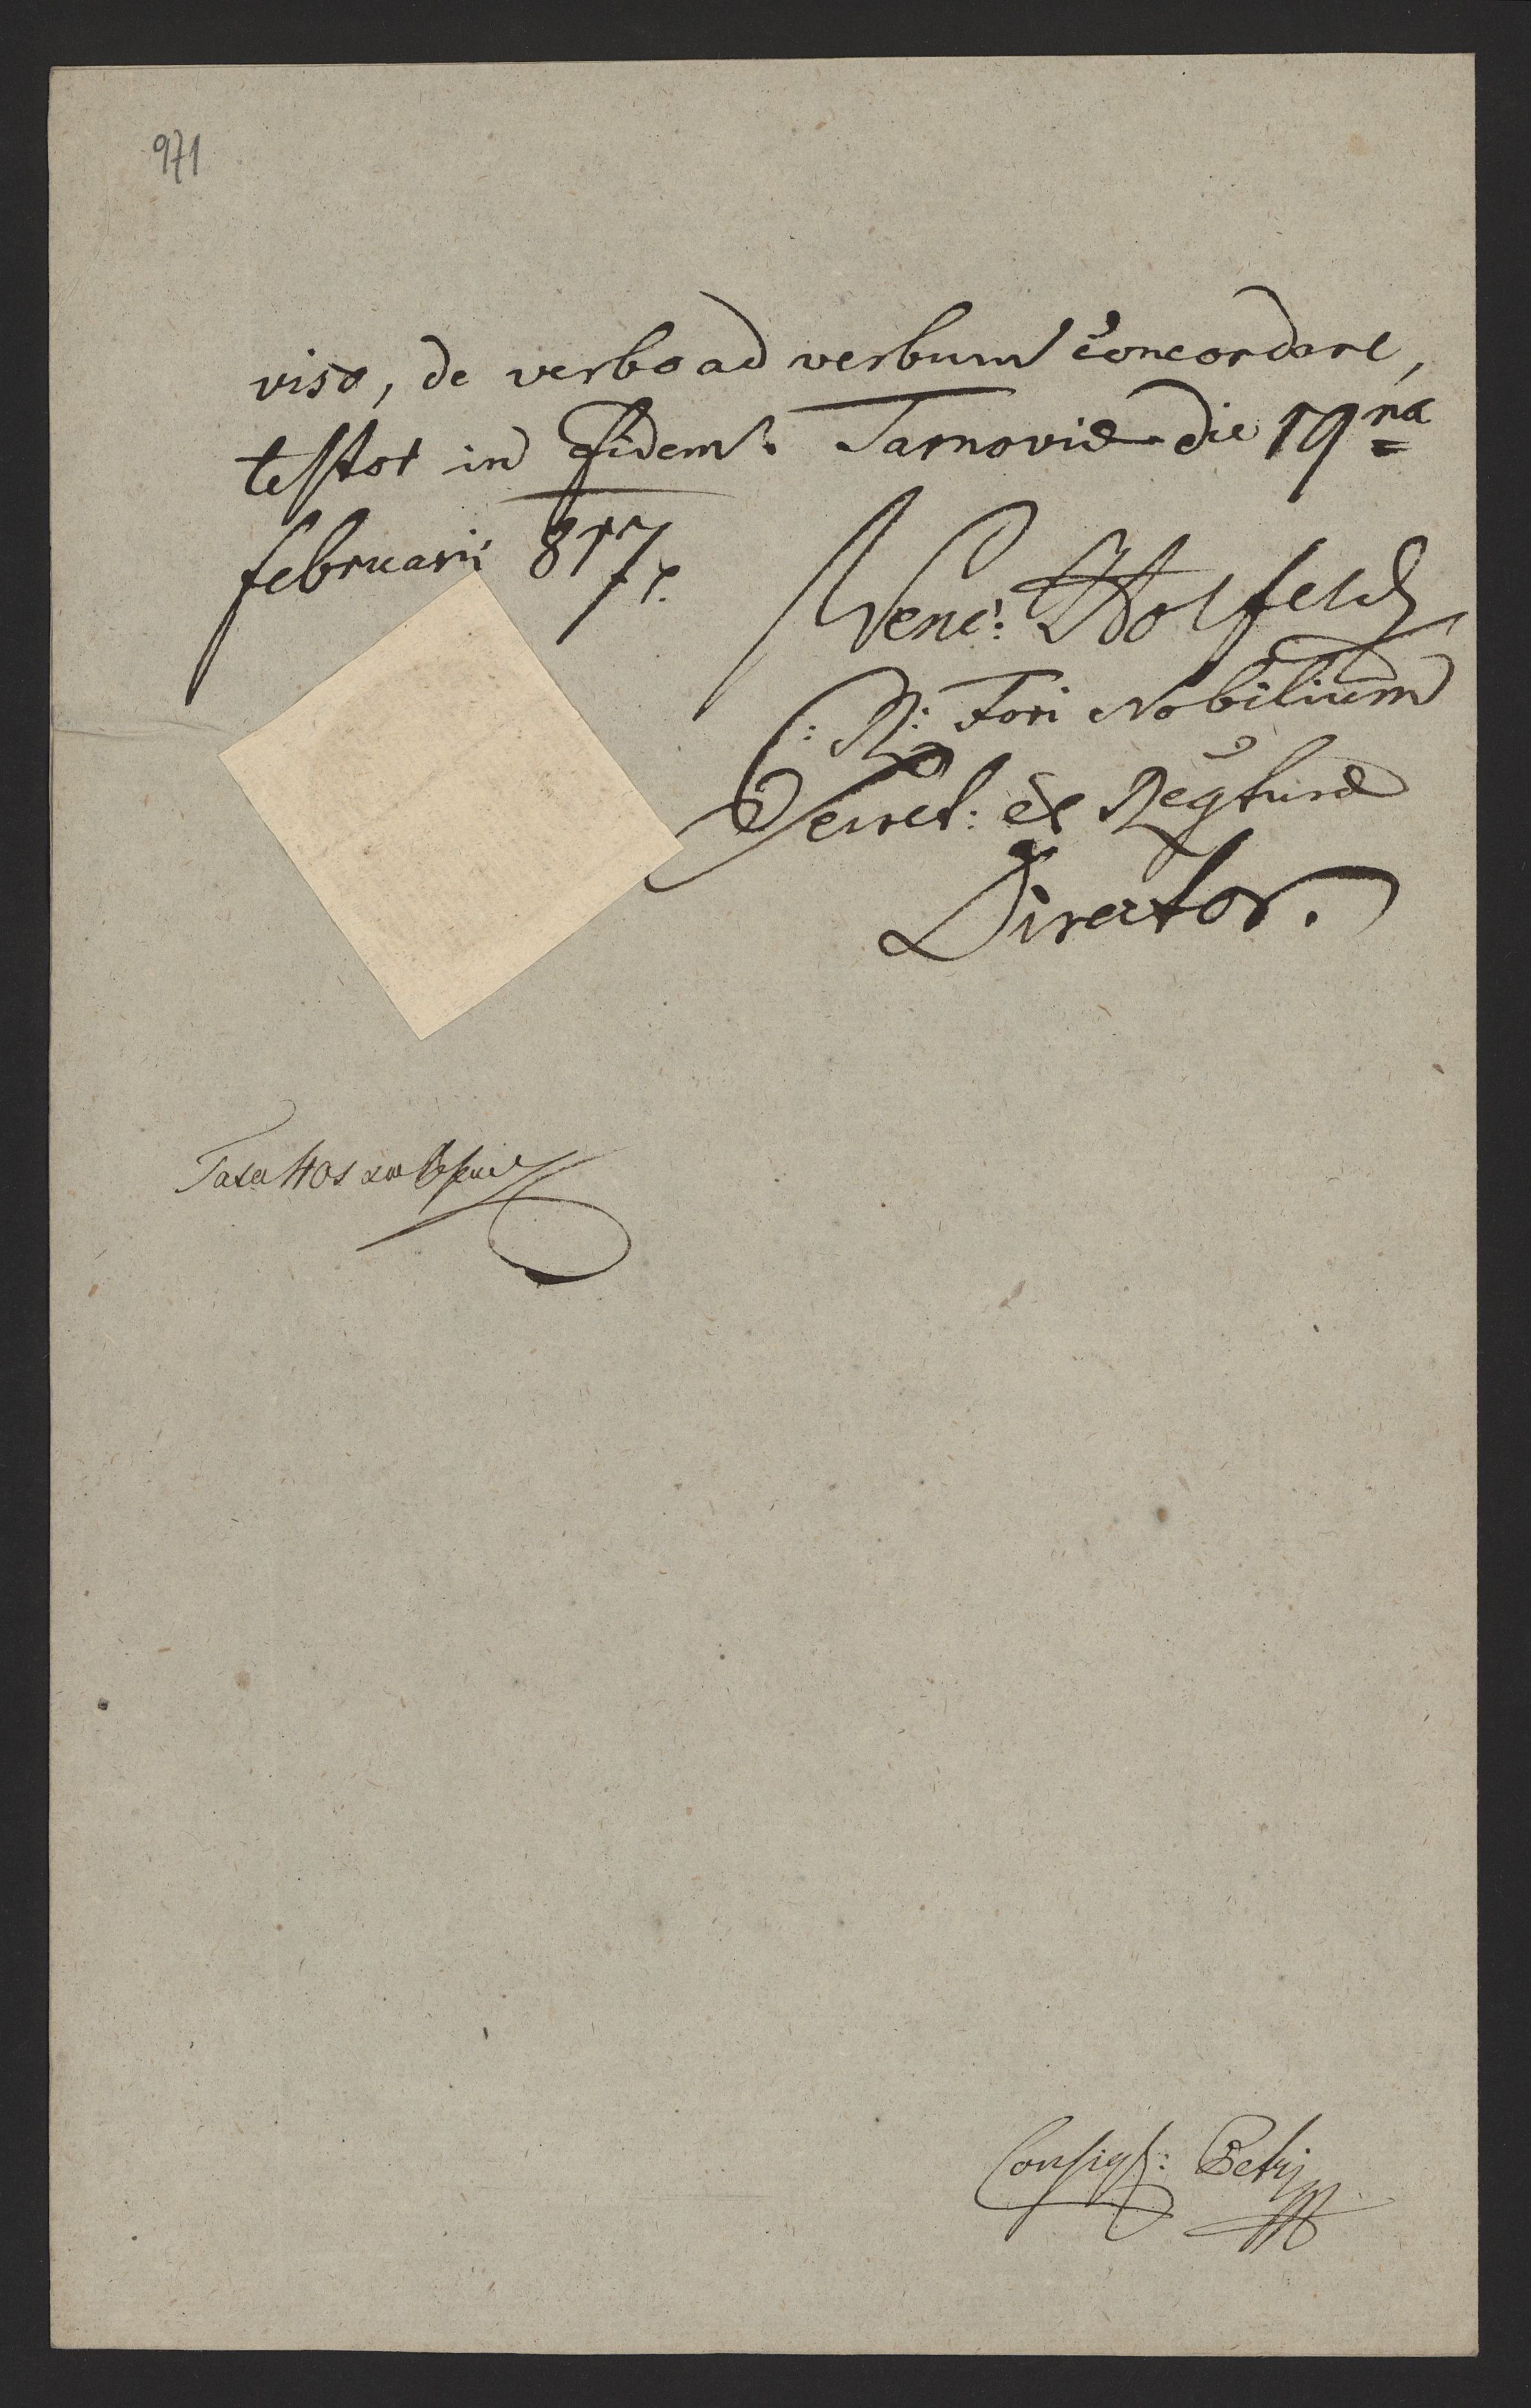 971
viso, de verbo ad verbum concordare,
testor in Fidem. Tarnoviæ die 19na
februarii 817.
Wenc: Wolfeld
:R: Fori Nobilium
Secret: et Regturæ
Director.
Taxa
Consigt: Petri